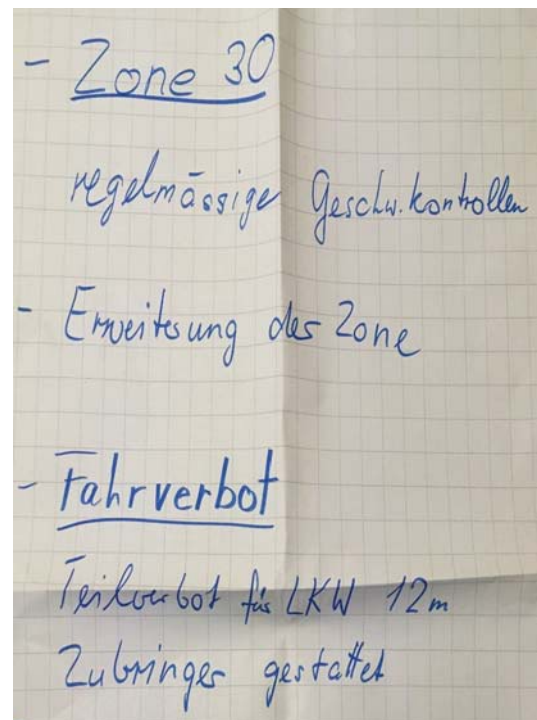 - Zone 30
regelmässige Geschw.kontrollen
- Erweiterung der Zone
- Fahrverbot
Teilverbot für LKW 12m
Zubringer gestattet